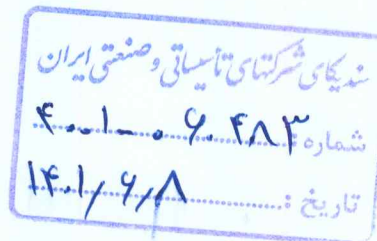 سندیکای شرکتهای تأسیساتی و صنعتی ایران
شماره : ۴۰۰۱-۰۶۰۴۸۳
تاریخ : ۱۴۰۱/۶/۸